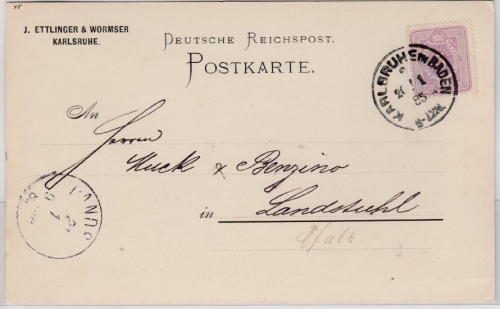 J. ETTLINGER & WORMSER
KARLSRUHE.
DEUTSCHE REICHSPOST.
POSTKARTE.
KARLSRUHE IN BADEN
An
Herren
Muck & Benzino
in
Landstuhl
Pfalz
LANDS